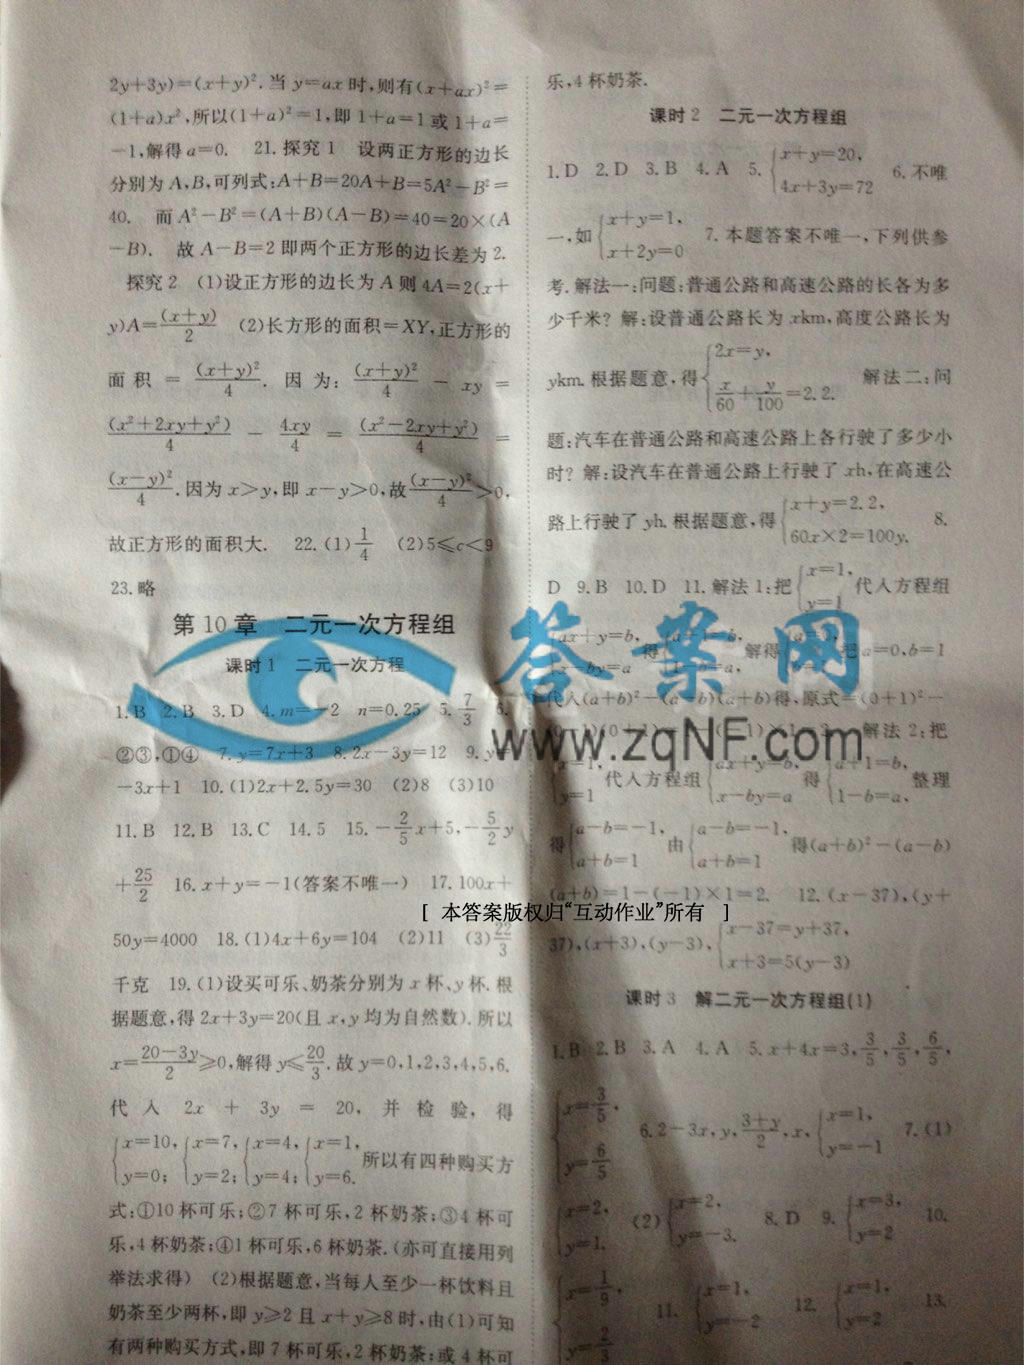 2y+3y)=(x+y)².当 y=ax 时,则有(x+ax)²=
(1+a)x²,所以(1+a)²=1,即 1+a=1 或 1+a=
-1,解得 a=0. 21.探究 1 设两正方形的边长
分别为 A,B,可列式:A+B=20A+B=5A²-B²=
40. 而 A²-B²=(A+B)(A-B)=40=20×(A
-B). 故 A-B=2 即两个正方形的边长差为 2.
探究 2 (1)设正方形的边长为 A 则 4A=2(x+
y)A=(x+y)/2 (2)长方形的面积=XY,正方形的
面积 = (x+y)²/4. 因为: (x+y)²/4 - xy =
(x²+2xy+y²)/4 - 4xy/4 = (x²-2xy+y²)/4 =
(x-y)²/4.因为 x>y,即 x-y>0,故(x-y)²/4>0.
故正方形的面积大. 22.(1)1/4 (2)5≤c<9
23.略
第 10 章 二元一次方程组
课时 1 二元一次方程
1.B 2.B 3.D 4.m=-2 n=0.25 5.7/3 6.
②③,①④ 7.y=7x+3 8.2x-3y=12 9.y=
-3x+1 10.(1)2x+2.5y=30 (2)8 (3)10
11.B 12.B 13.C 14.5 15.-2/5x+5,-5/2y
+25/2 16.x+y=-1(答案不唯一) 17.100x+
50y=4000 18.(1)4x+6y=104 (2)11 (3)22/3
千克 19.(1)设买可乐、奶茶分别为 x 杯、y 杯.根
据题意,得 2x+3y=20(且 x,y 均为自然数).所以
x=(20-3y)/2≥0,解得 y≤20/3.故 y=0,1,2,3,4,5,6.
代入 2x + 3y = 20, 并检验, 得
{x=10, y=0; {x=7, y=2; {x=4, y=4; {x=1, y=6. 所以有四种购买方
式:①10 杯可乐;②7 杯可乐,2 杯奶茶;③4 杯可
乐,4 杯奶茶;④1 杯可乐,6 杯奶茶.(亦可直接用列
举法求得) (2)根据题意,当每人至少一杯饮料且
奶茶至少两杯,即 y≥2 且 x+y≥8 时,由(1)可知
有两种购买方式,即 7 杯可乐,2 杯奶茶;或 4 杯可
乐,4 杯奶茶.
课时 2 二元一次方程组
1.D 2.D 3.B 4.A 5.{x+y=20, 4x+3y=72 6.不唯
一,如{x+y=1, x+2y=0 7.本题答案不唯一,下列供参
考.解法一:问题:普通公路和高速公路的长各为多
少千米? 解:设普通公路长为 xkm,高度公路长为
ykm.根据题意,得{2x=y, x/60+y/100=2.2. 解法二:问
题:汽车在普通公路和高速公路上各行驶了多少小
时? 解:设汽车在普通公路上行驶了 xh,在高速公
路上行驶了 yh.根据题意,得{x+y=2.2, 60x×2=100y. 8.
D 9.B 10.D 11.解法 1:把{x=1, y=1 代入方程组
{ax+y=b, x-by=a 得 解得 把 a=0,b=1
代入(a+b)²-(a-b)(a+b)得,原式=(0+1)²-
解法 2:把
{x=1, y=1 代入方程组{ax+y=b, x-by=a 得{a+1=b, 1-b=a, 整理
得{a-b=-1, a+b=1 由{a-b=-1, a+b=1 得(a+b)²-(a-b)
(a+b)=1-(-1)×1=2. 12.(x-37),(y+
37),(x+3),(y-3),{x-37=y+37, x+3=5(y-3)
课时 3 解二元一次方程组(1)
1.B 2.B 3.A 4.A 5.x+4x=3,3/5,3/5,6/5,
{x=3/5, y=6/5 6.2-3x,y,(3+y)/2,x,{x=1, y=-1 7.(1)
{x=2, y=1. (2){x=2, y=-3. 8.D 9.{x=3, y=2 10.
{x=1/9, y=2/3 11.{x=1, y=-2 12.{x=1, y=2 13.
答案网
www.zqNF.com
[ 本答案版权归“互动作业”所有 ]